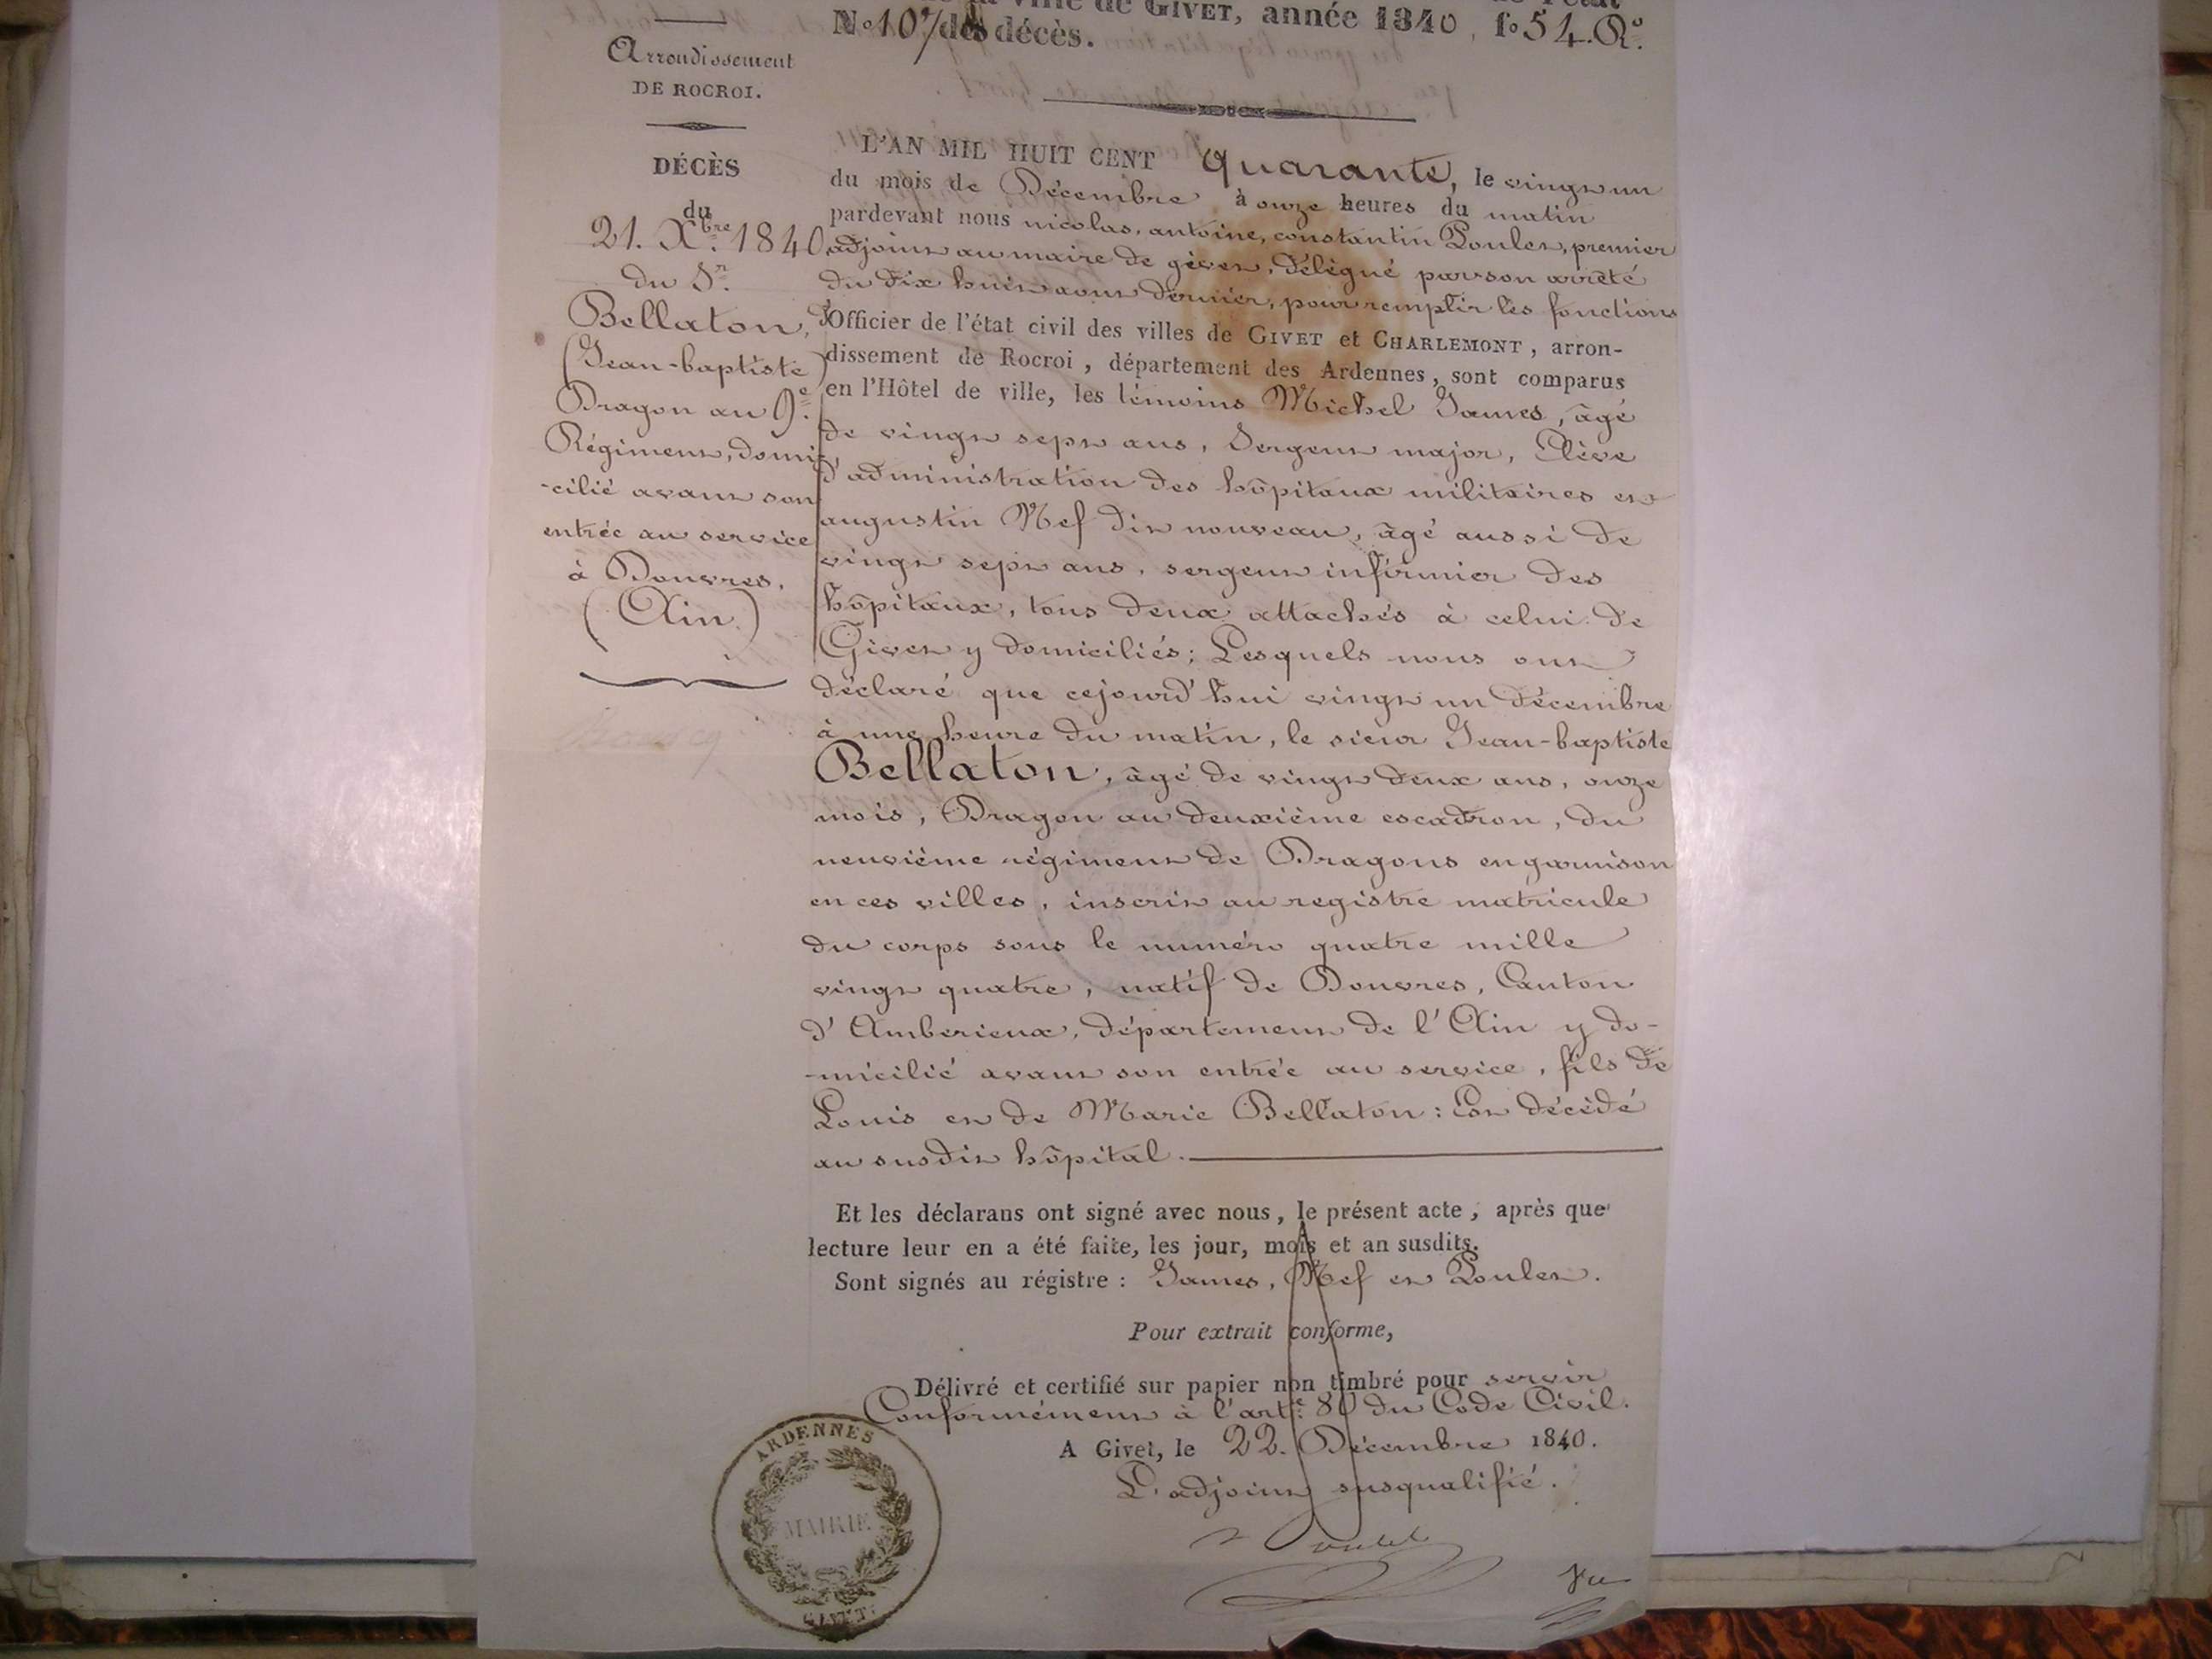 la ville de GIVET, année 1840, fo 54. Ro.
No 107 des décès.
Arrondissement
DE ROCROI.
DÉCÈS
du
21. Xbre 1840
du Sr.
Bellaton,
(Jean-baptiste)
Dragon au 9e.
Régiment, domi-
-cilié avant son
entrée au service
à Douvres,
(Ain)
L'AN MIL HUIT CENT quarante, le vingt un
du mois de Décembre à onze heures du matin
pardevant nous nicolas, antoine, constantin Poulet, premier
adjoint au maire de givet, délégué par son arrêté
du dix huit aout dernier, pour remplir les fonctions
d'Officier de l'état civil des villes de GIVET et CHARLEMONT, arron-
dissement de Rocroi, département des Ardennes, sont comparus
en l'Hôtel de ville, les témoins Michel James, âgé
de vingt sept ans, Sergent major, Elève
d'administration des hôpitaux militaires et
augustin Nef dit nouveau, âgé aussi de
vingt sept ans, sergent infirmier des
hôpitaux, tous deux attachés à celui de
Givet y domiciliés; Lesquels nous ont
déclaré que cejourd'hui vingt un décembre
à une heure du matin, le sieur Jean-baptiste
Bellaton, âgé de vingt deux ans, onze
mois, Dragon au deuxième escadron, du
neuvième régiment de Dragons en garnison
en ces villes, inscrit au registre matricule
du corps sous le numéro quatre mille
vingt quatre, natif de Douvres, Canton
d'Amberieux, département de l'Ain y do-
-micilié avant son entrée au service, fils de
Louis et de Marie Bellaton: Est décédé
au susdit hôpital.
Et les déclarans ont signé avec nous, le présent acte, après que
lecture leur en a été faite, les jour, mois et an susdits.
Sont signés au régistre: James, Nef et Poulet.
Pour extrait conforme,
Délivré et certifié sur papier non timbré pour servir
Conformément à l'arte. 80 du Code Civil.
A Givet, le 22. Décembre 1840.
L'adjoint susqualifié.
Poulet
Vu
ARDENNES
MAIRIE
GIVET